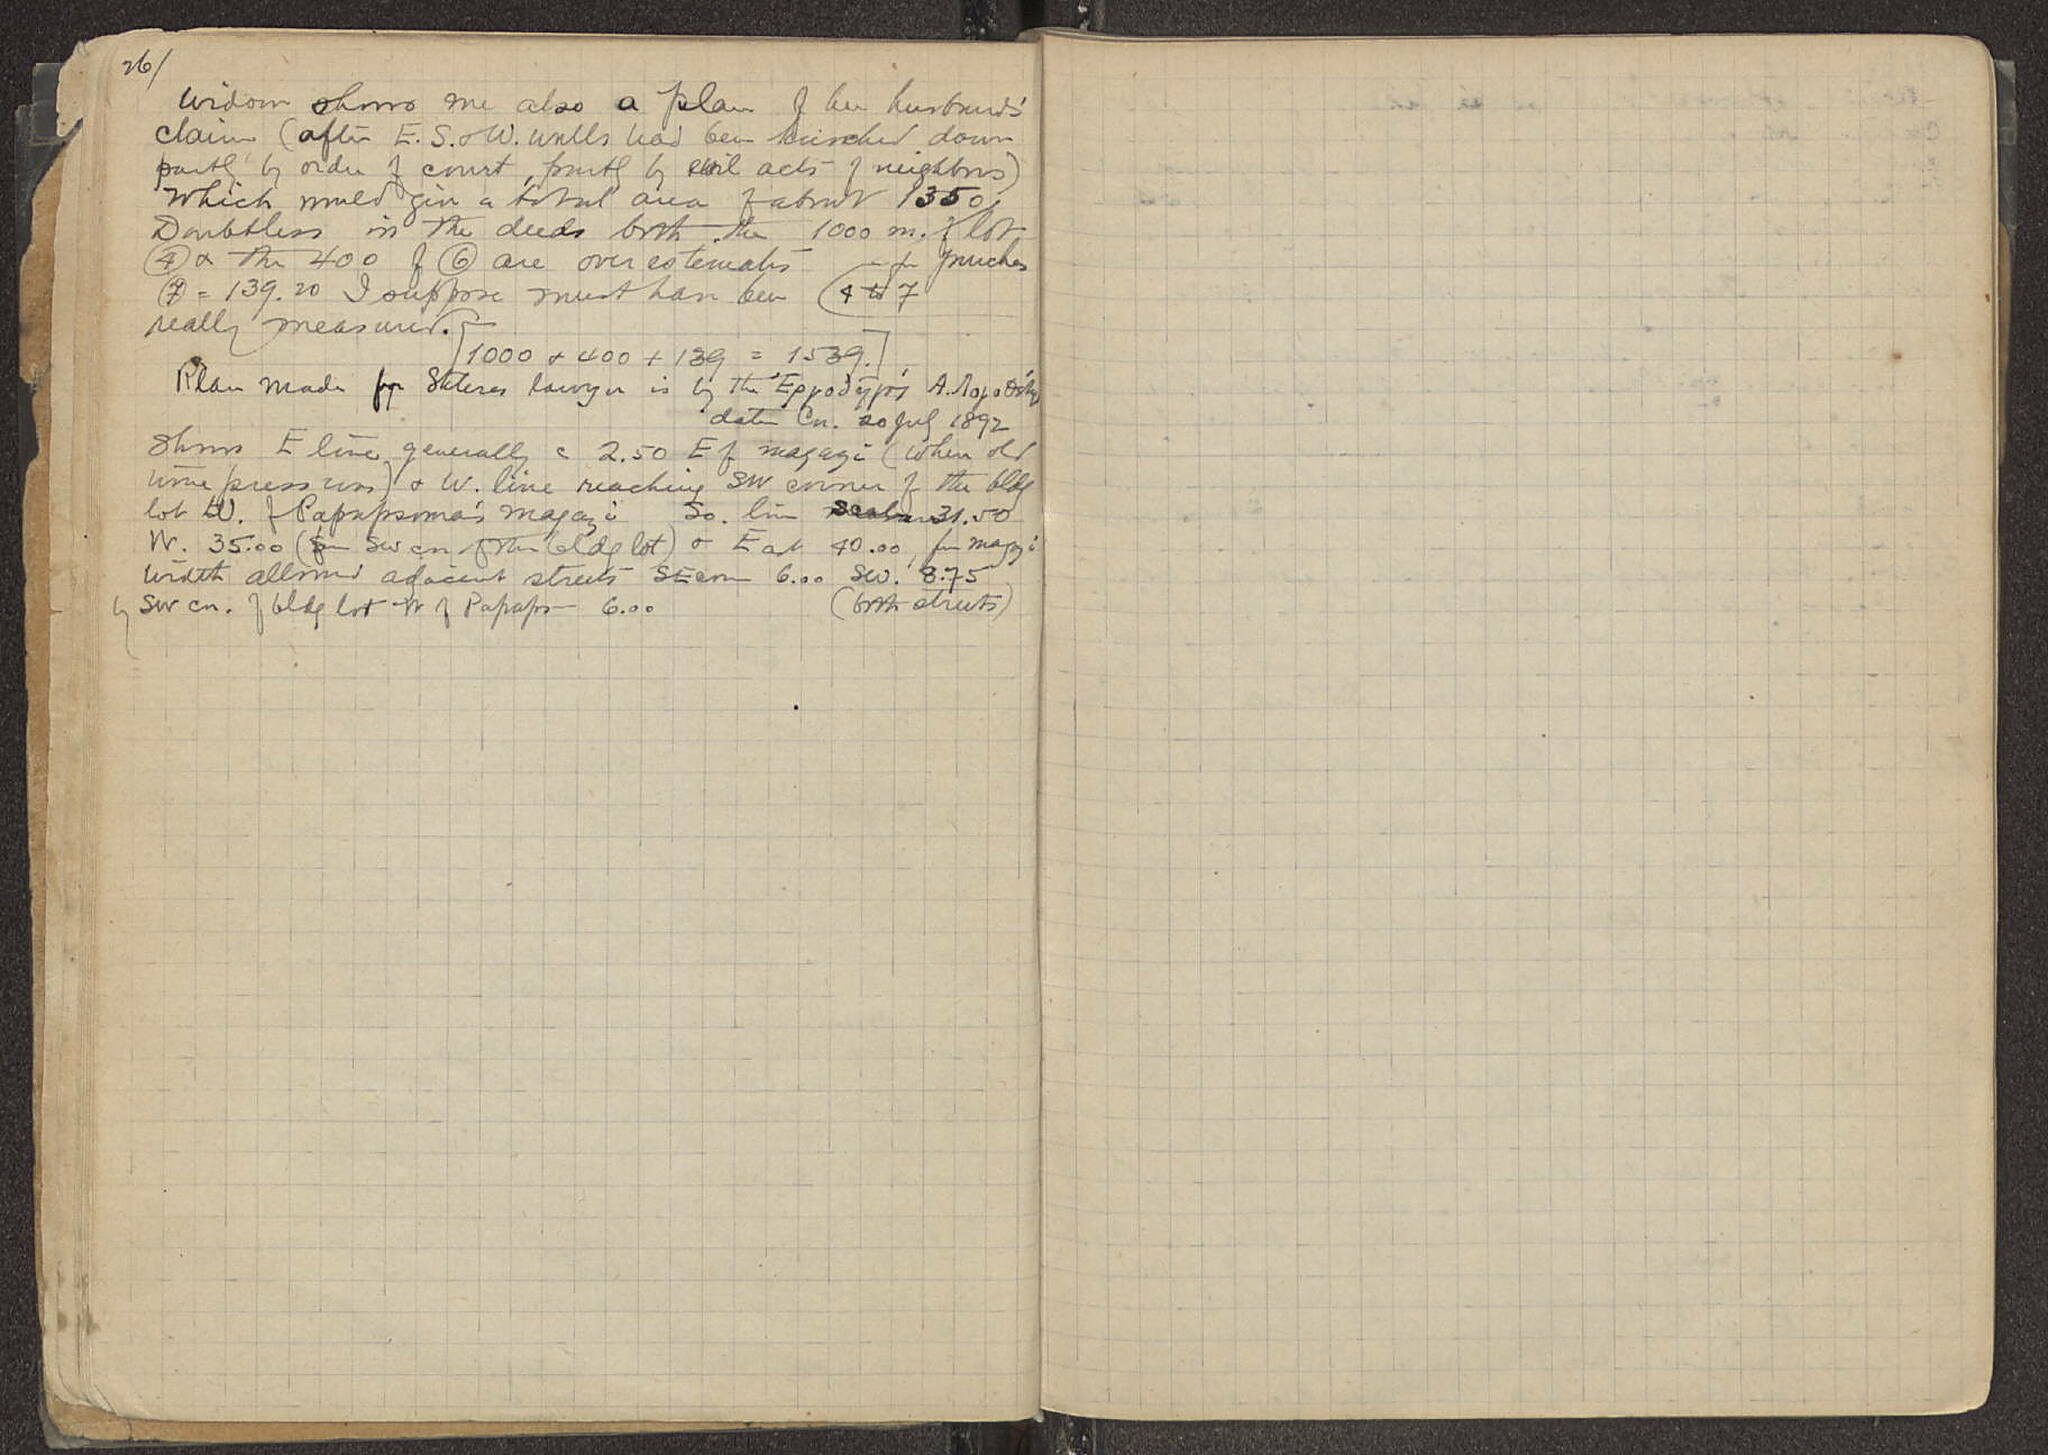 26/
Widow shows me also a plan of her husband's
claim (after E. S. & W. walls had been knocked down
partly by order of court, partly by evil acts of neighbors)
Which would give a total area of about 1350.
Doubtless in the deeds both the 1000 m. of lot
④ & the 400 of ⑥ are over estimates
⑦ = 139.20 I suppose must have been (4 to 7
really measured.
[1000 & 400 + 139 = 1539.]
Plan made for lawyer is by the Ἐργοδηγός Α.
date Cn. 20 July 1892
Shows E line generally c 2.50 E of magazi (when old
wine press was) & W. line reaching SW corner of the bldg
lot W. of Papapsoma's magazi So. line 31.50
W. 35.00 (from SW cn of the bldg lot) & E at 40.00, for magazi
Width allowed adjacent streets SE corn 6.00 SW. 8.75
by SW cn. of bldg lot W of Papaps— 6.00 (both streets)